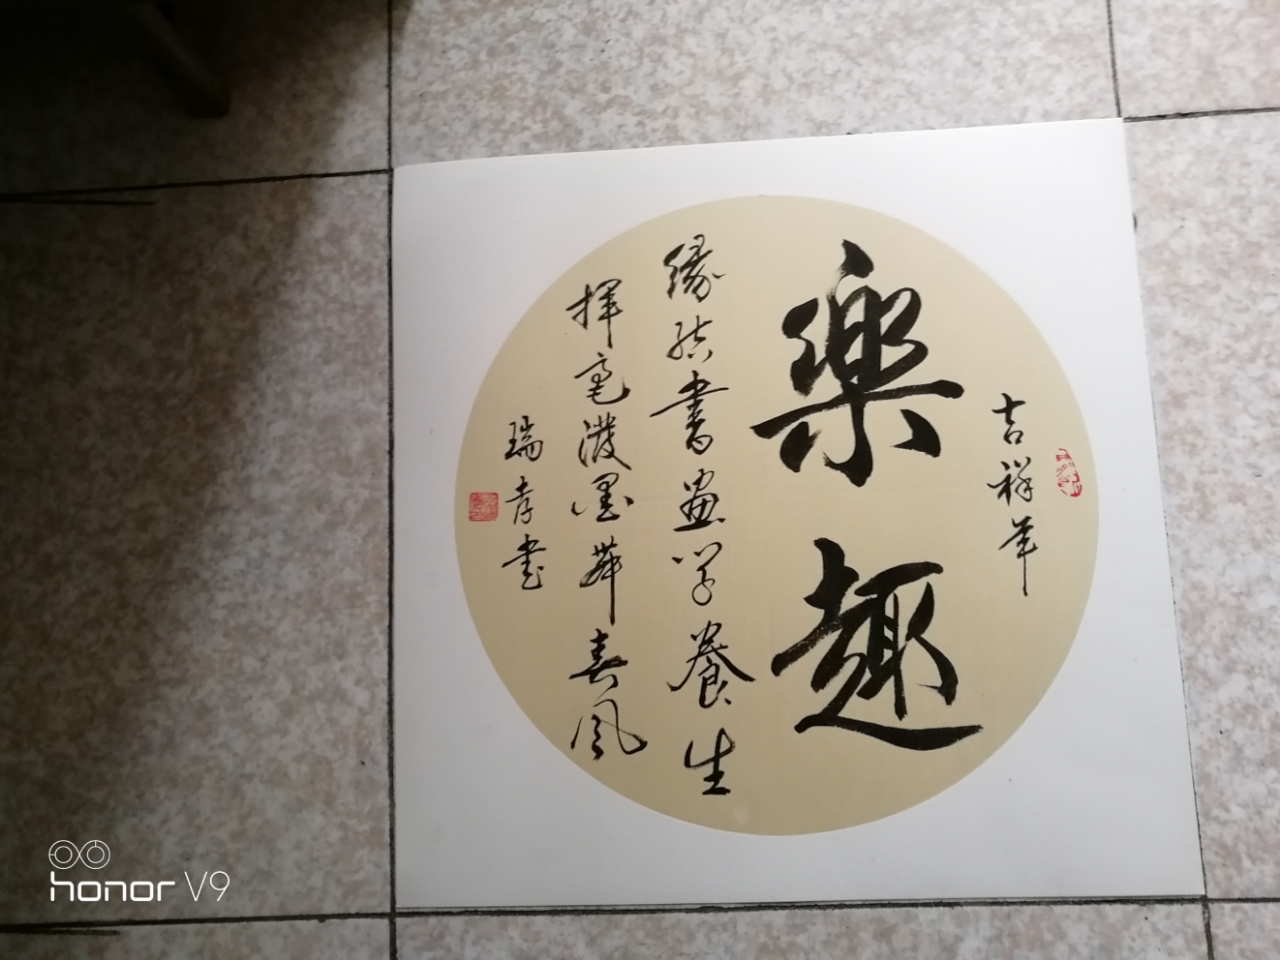 吉祥年
樂趣
緣結書畫學養生
揮毫潑墨舞春風
瑞孝書
honor V9